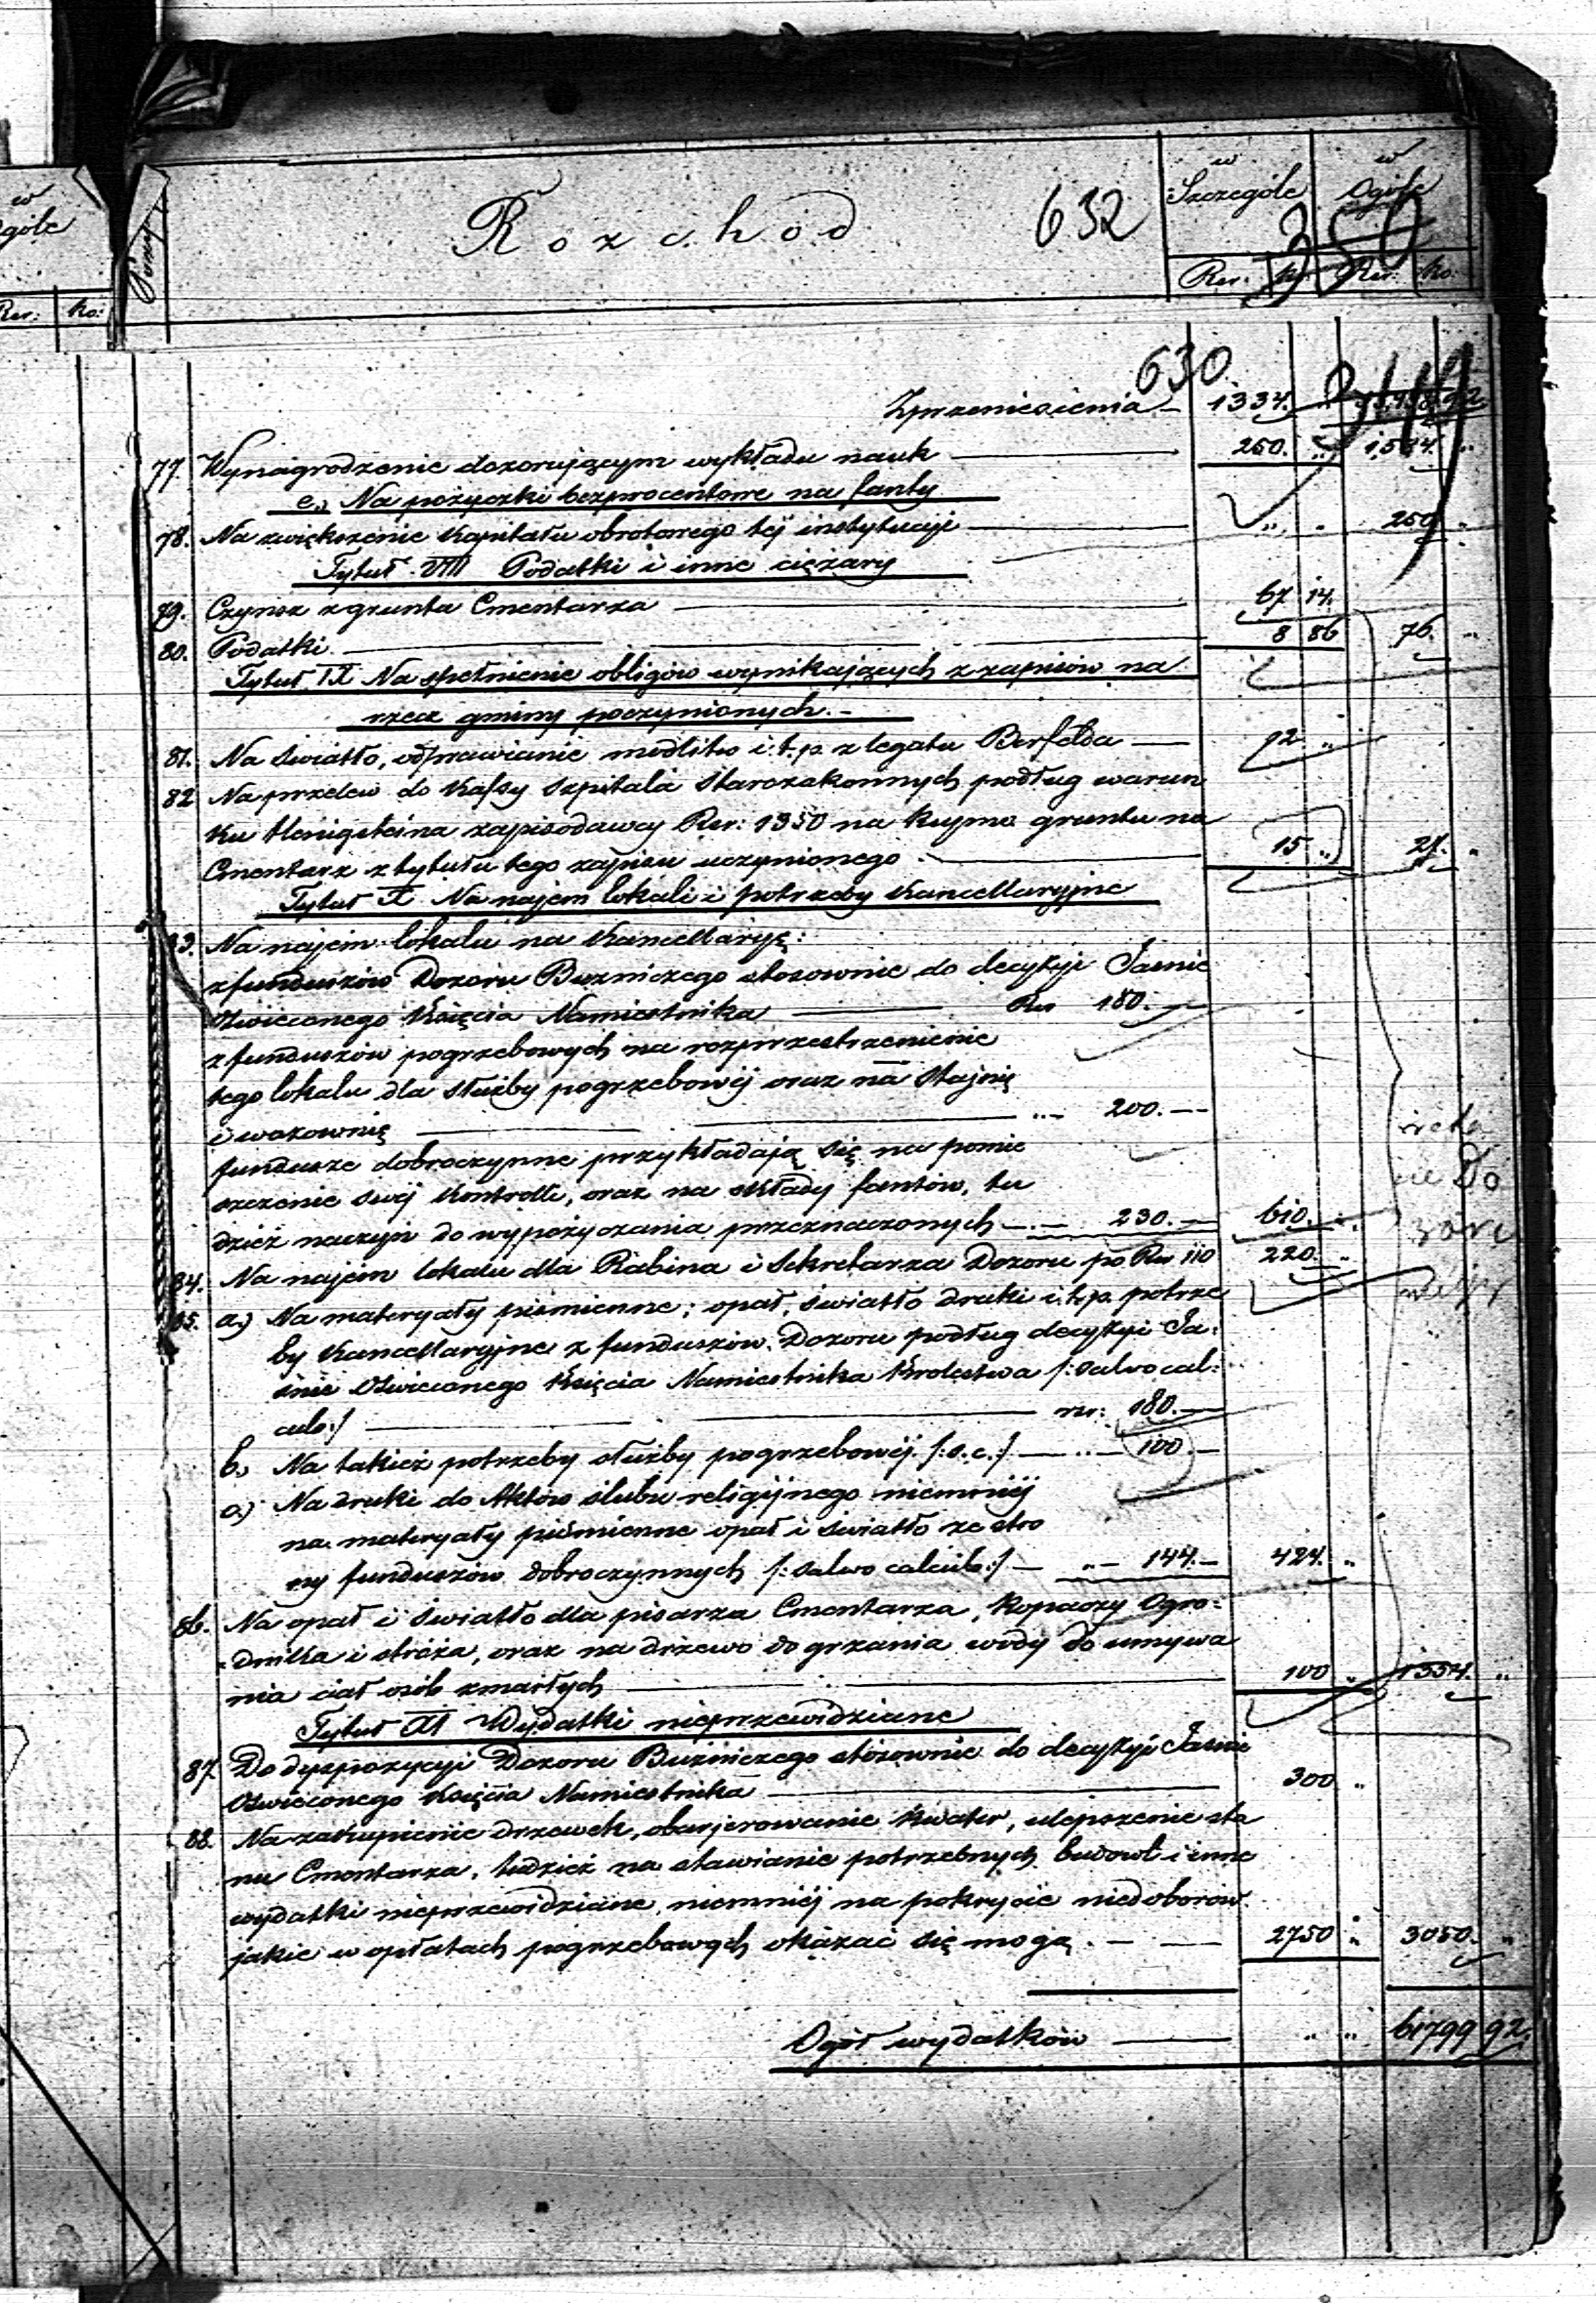 w
w
w Szczególe Ogóle
góle
Pozycya
Rozchód
632
350
Rsr: ko: Rsr: ko:
Rsr: ko:
630
Z przeniesienia — 1334. „
77. Wynagrodzenie dozorującym wykładu nauk — 250. „ 1,584. „
e.) Na pożyczki bezprocentowe na fanty
78. Na zwiększenie Kapitału obrotowego tej instytucyi — „ „ 250 „
Tytuł VIII Podatki i inne ciężary
79. Czynsz z gruntu Cmentarza — 67 14.
80. Podatki — 8 86 76. „
Tytuł IX Na spełnienie obligów wynikających z zapisów na
rzecz gminy poczynionych. —
81. Na światło, odprawianie modlitw i. t. p. z legatu Berfelda — 12 „
82 Na przelew do Kassy Szpitala Starozakonnych podług warun
ku Henigsteina zapisodawcy Rsr: 1350 na kupno gruntu na
Cmentarz z tytułu tego zapisu uczynionego. — 15 „ 27. „
Tytuł X Na najem lokali i potrzeby Kancellaryjne
83. Na najem lokalu na Kancellaryę:
z funduszów Dozoru Bożniczego stosownie do decyzyi Jaśnie
Oświeconego Księcia Namiestnika — Rsr 180. —
z funduszów pogrzebowych na rozprzestrzenienie
tego lokalu dla służby pogrzebowej oraz na Stajnię
i wozownię — „ — 200. —
fundusze dobroczynne przykładają się na pomie
szczenie swej Kontrolli, oraz na składy fantów, tu
dzież naczyń do wypożyczania przeznaczonych — „ — 230. — 610. „
84. Na najem lokalu dla Rabina i Sekretarza Dozoru po Rsr 110 220. „
85. a.) Na materyały piśmienne; opał, światło druki i. t. p. potrze
by Kancellaryjne z funduszów Dozoru podług decyzyi Ja:
śnie Oświeconego Księcia Namiestnika Królestwa /: salvo cal:
culo :/ — rsr: 180. —
b.) Na takież potrzeby służby pogrzebowej /: s. c. :/ — „ — 100. —
c.) Na druki do Aktów ślubu religijnego niemniej
na materyały piśmienne opał i światło ze stro
ny funduszów dobroczynnych /: salvo calculo :/ — „ — 144. — 424. „
86. Na opał i światło dla pisarza Cmentarza, Kopaczy Ogro:
dnika i stróża, oraz na drzewo do grzania wody do umywa
nia ciał osób zmarłych — 100 „ 1354. „
Tytuł XI Wydatki nieprzewidziane
87. Do dyspozycyi Dozoru Bóżniczego stosownie do decyzyi Jaśnie
Oświeconego Księcia Namiestnika — 300 „
88. Na zakupienie drzewek, obarjerowanie Kwater, ulepszenie sta
nu Cmentarza, tudzież na stawianie potrzebnych budowl i inne
wydatki nieprzewidziane, niemniej na pokrycie niedoborów
jakie w opłatach pogrzebowych okazać się mogą. — 2750 „ 3050. „
Ogół wydatków — „ „ 61799 92.